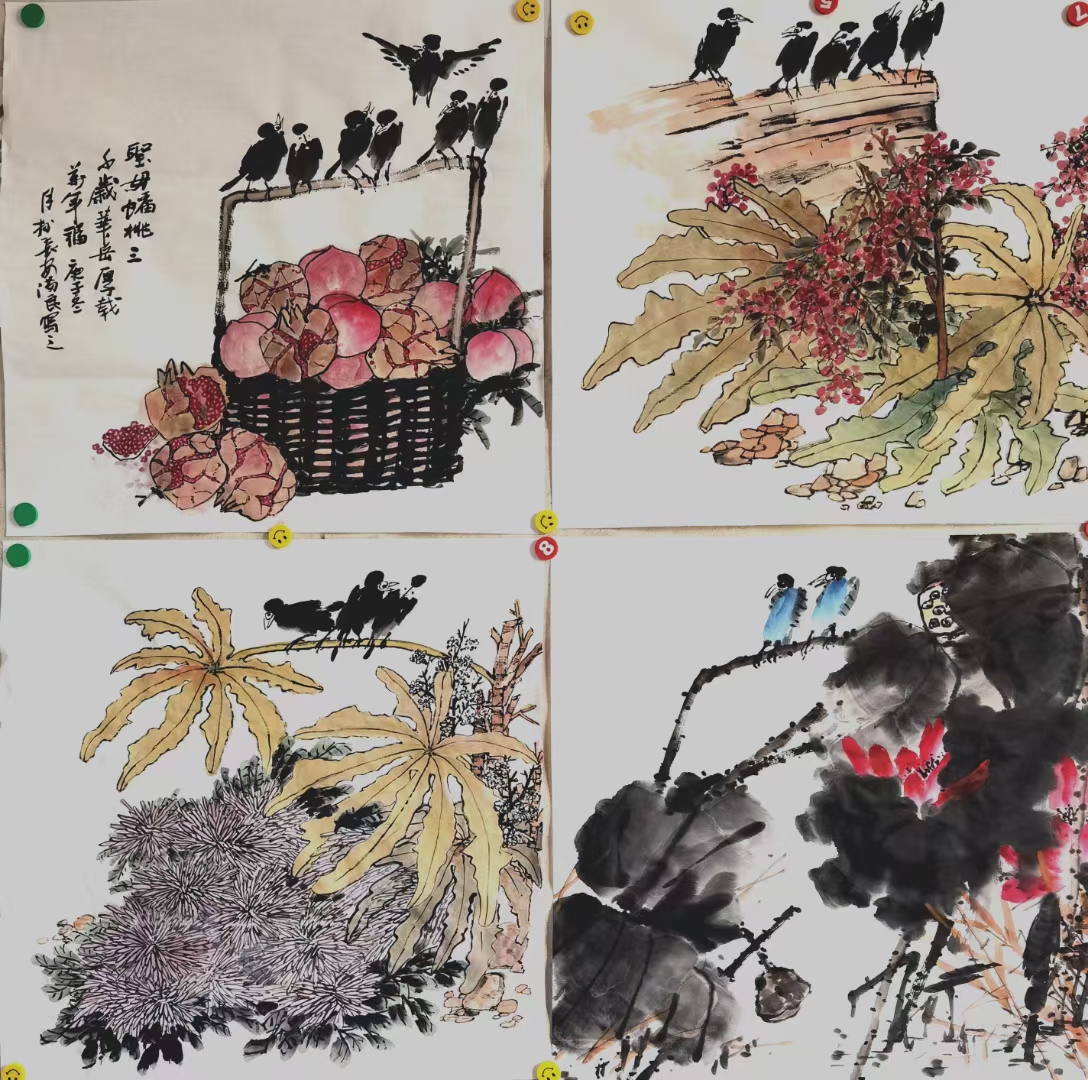 聖母蟠桃三
千歲華岳厚載
萬年福 庚子冬
月於長安满良寫之
5
7
8